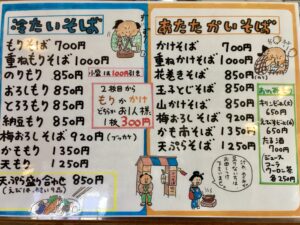 冷たいそば
もりそば 700円
重ねもりそば 1000円
のりもり 850円
小盛は100円引き
おろしもり 850円
とろろもり 850円
納豆もり 850円
梅おろしそば 920円
かもり 1350円
天もり 1250円
天ぷら盛り合わせ 850円
2枚目から
もりかかけ
どちらかお1人様
1枚300円
あたたかいそば
かけそば 700円
重ねかけそば 1000円
花巻きそば 850円
玉子とじそば 850円
山かけそば 850円
梅おろしそば 920円
かも南そば 1350円
天ぷらそば 1250円
650円
650円
700円
ジュース
コーラ
ウーロン茶
各250円